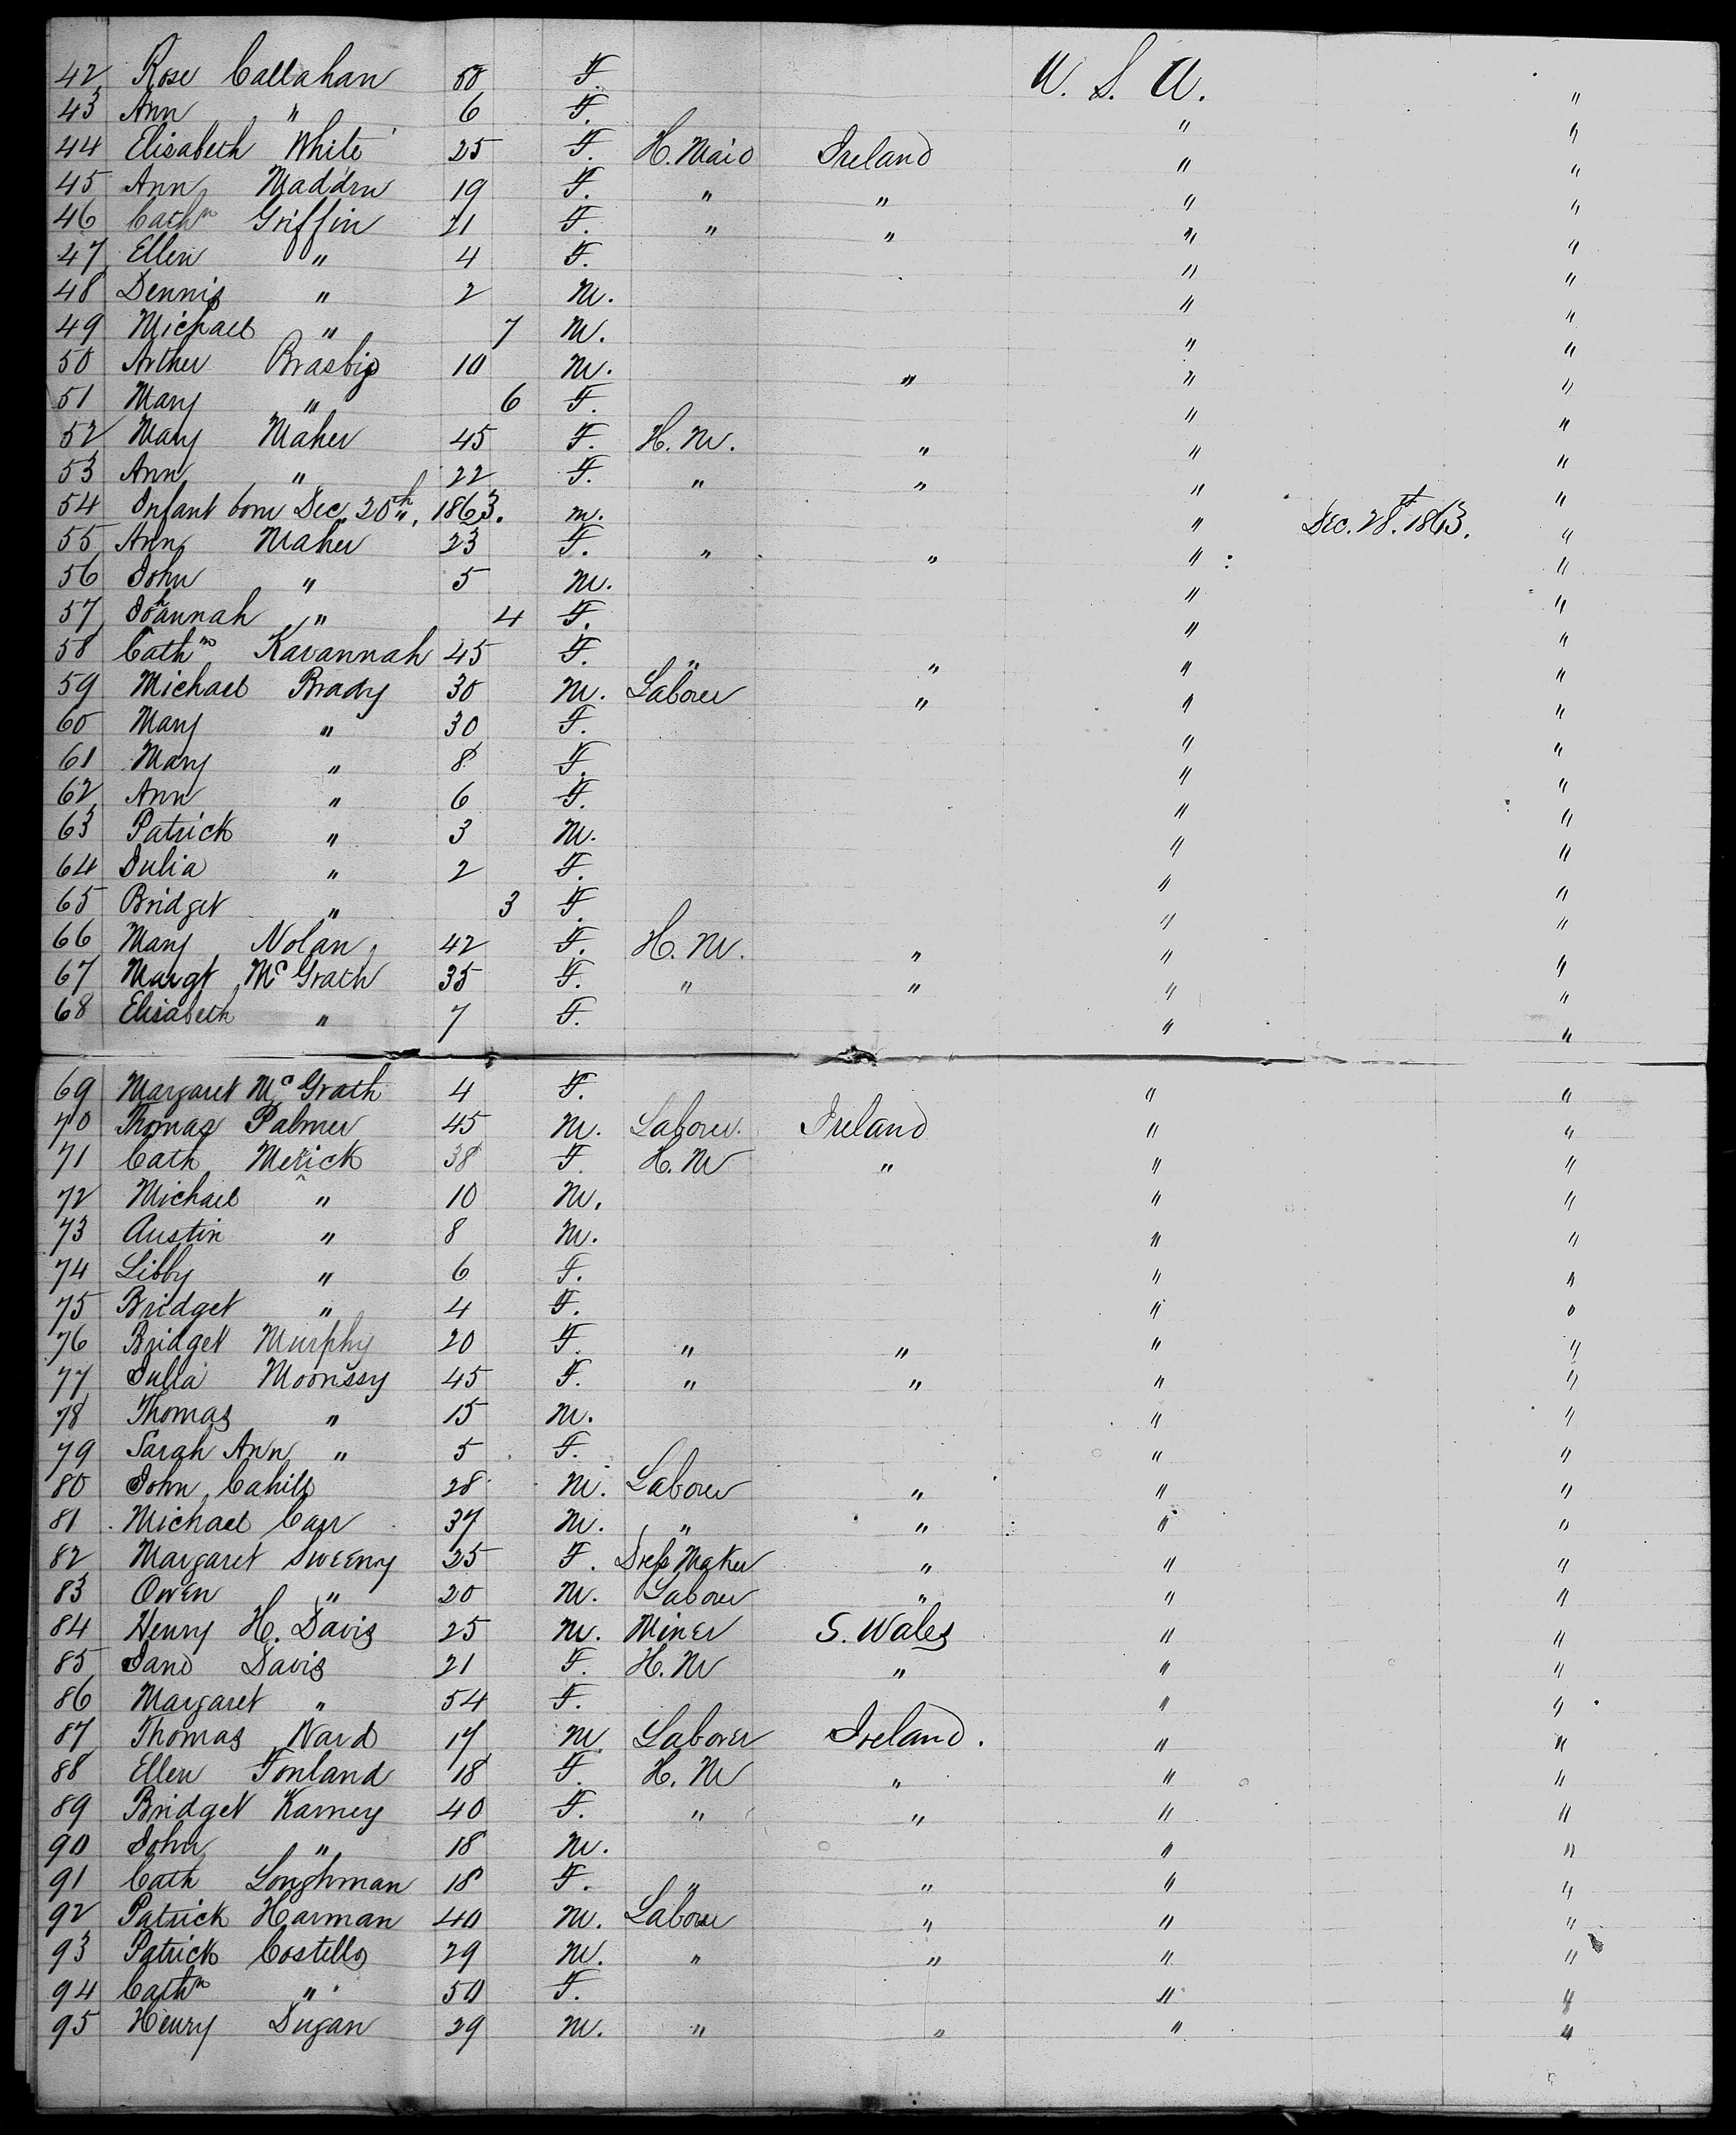 42 Rose Callahan 50 F. U. S. A. "
43 Ann " 6 F. " "
44 Elisabeth White 25 F. H. Maid Ireland " "
45 Ann Madden 19 F. " " " "
46 Cathn Griffin 21 F. " " " "
47 Ellen " 4 F. " "
48 Dennis " 2 M. " "
49 Michael " 7 M. " "
50 Arther Brasbip 10 M. " " "
51 Mary " 6 F. " "
52 Mary Maher 45 F. H. M. " " "
53 Ann " 22 F. " " " "
54 Infant born Dec. 20th, 1863. m. " Dec. 28th. 1863. "
55 Ann Maher 23 F. " " " "
56 John " 5 M. " "
57 Johannah " 4 F. " "
58 Cathn Kavannah 45 F. " " " "
59 Michael Brady 30 M. Laborer " " "
60 Mary " 30 F. " "
61 Mary " 8 F. " "
62 Ann " 6 F. " "
63 Patrick " 3 M. " "
64 Julia " 2 F. " "
65 Bridget " 3 F. " "
66 Mary Nolan 42 F. H. M. " " "
67 Margt McGrath 35 F. " " " "
68 Elisabeth " 7 F. " "
69 Margaret McGrath 4 F. " "
70 Thomas Palmer 45 M. Laborer Ireland " "
71 Cath Merick 38 F. H. M " " "
72 Michael " 10 M. " "
73 Austin " 8 M. " "
74 Libby " 6 F. " "
75 Bridget " 4 F. " "
76 Bridget Murphy 20 F. " " " "
77 Julia 45 F. " " " "
78 Thomas " 15 M. " "
79 Sarah Ann " 5 F. " "
80 John Cahill 28 M. Laborer " " "
81 Michael Carr 37 M. " " " "
82 Margaret Sweeny 25 F. Dress Maker " " "
83 Owen " 20 M. Laborer " " "
84 Henry H. Davis 25 M. Miner S. Wales " "
85 Jane Davis 21 F. H. M " " "
86 Margaret " 54 F. " "
87 Thomas Ward 17 M Laborer Ireland. " "
88 Ellen Fonland 18 F. H. M " " "
89 Bridget Karney 40 F. " " " "
90 John " 18 M. " "
91 Cath Loughman 18 F. " " " "
92 Patrick Harman 40 M. Laborer " " "
93 Patrick Costello 29 M. " " " "
94 Cathn " 50 F. " "
95 Henry Dugan 29 M. " " " "